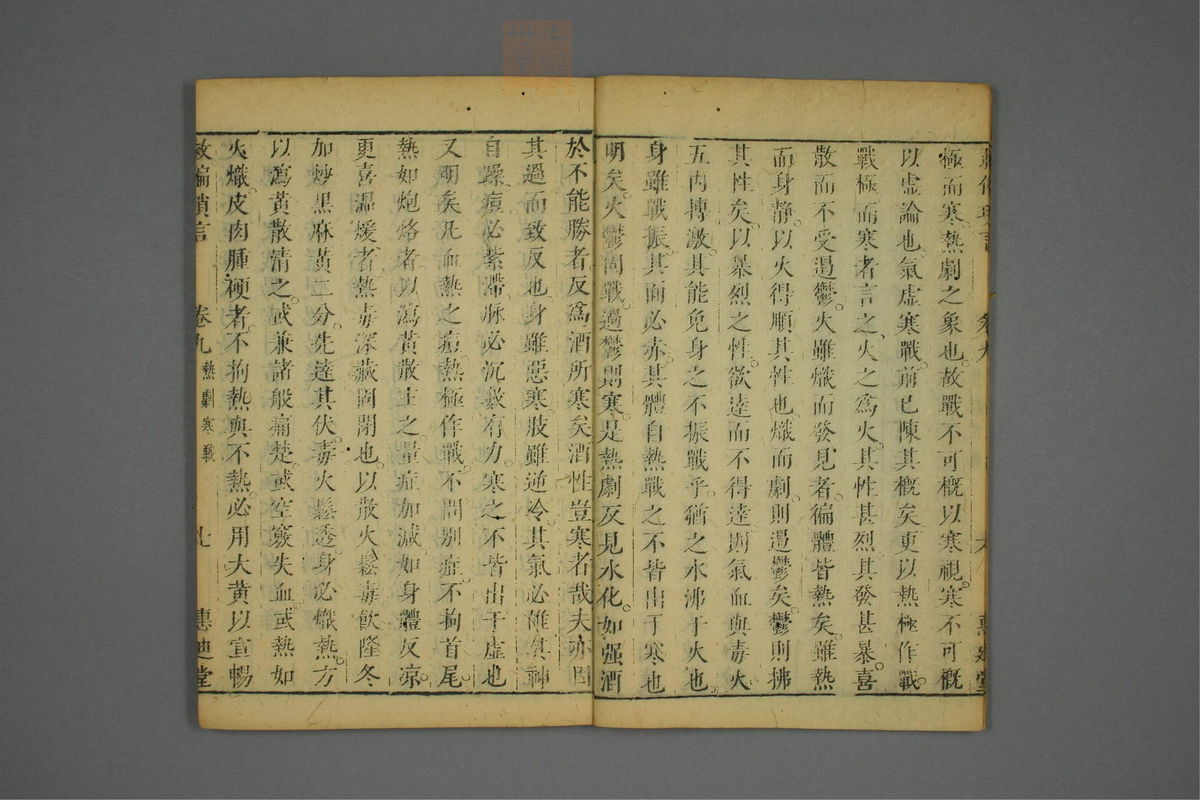 極而寒熱劇之象也故戰不可概以寒視寒不可概
以虛論也氣虛寒戰前已陳其概矣更以熱極作戰
戰極而寒者言之火之爲火其性甚烈其發甚暴喜
散而不受遏鬱火雖熾而發見者徧體皆熱矣雖熱
而身靜以火得順其性也熾而劇則遏鬱矣鬱則拂
其性矣以暴烈之性欲達而不得達則氣血與毒火
五內摶激其能免身之不振戰乎猶之水沸于火也
身雖戰振其面必赤其體自熱戰之不皆出于寒也
明矣火鬱而戰遏鬱則寒是熱劇反見水化如强酒
於不能勝者反爲酒所寒矣酒性豈寒者哉夫亦因
其過而致反也身雖惡寒肢雖逆冷其氣必雄其神
自躁痘必紫滯脉必沉數有力寒之不皆出于虛也
又明矣凡血熱之痘熱極作戰不問別症不拘首尾
熱如炮烙者以瀉黃散主之量症加減如身體反凉
更喜溫煖者熱毒深藏固閉也以散火鬆毒飲隆冬
加炒黑麻黃二分先達其伏毒火鬆透身必熾熱方
以瀉黃散清之或兼諸般痛楚或空竅失血或熱如
火熾皮肉腫硬者不拘熱與不熱必用大黃以宣暢
救偏瑣言 卷九 熱劇寒戰 七 惠迪堂